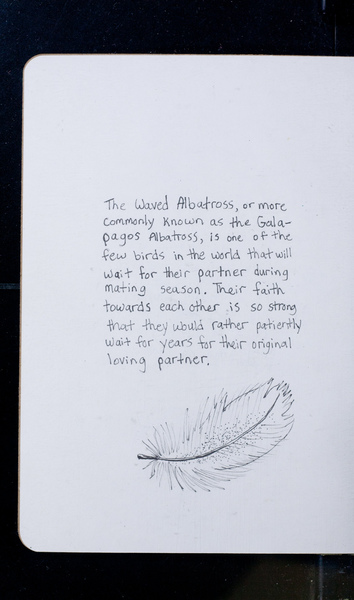 The Waved Albatross, or more
commonly known as the Gala-
pagos Albatross, is one of the
few birds in the world that will
wait for their partner during
mating season. Their faith
towards each other is so strong
that they would rather patiently
wait for years for their original
loving partner.